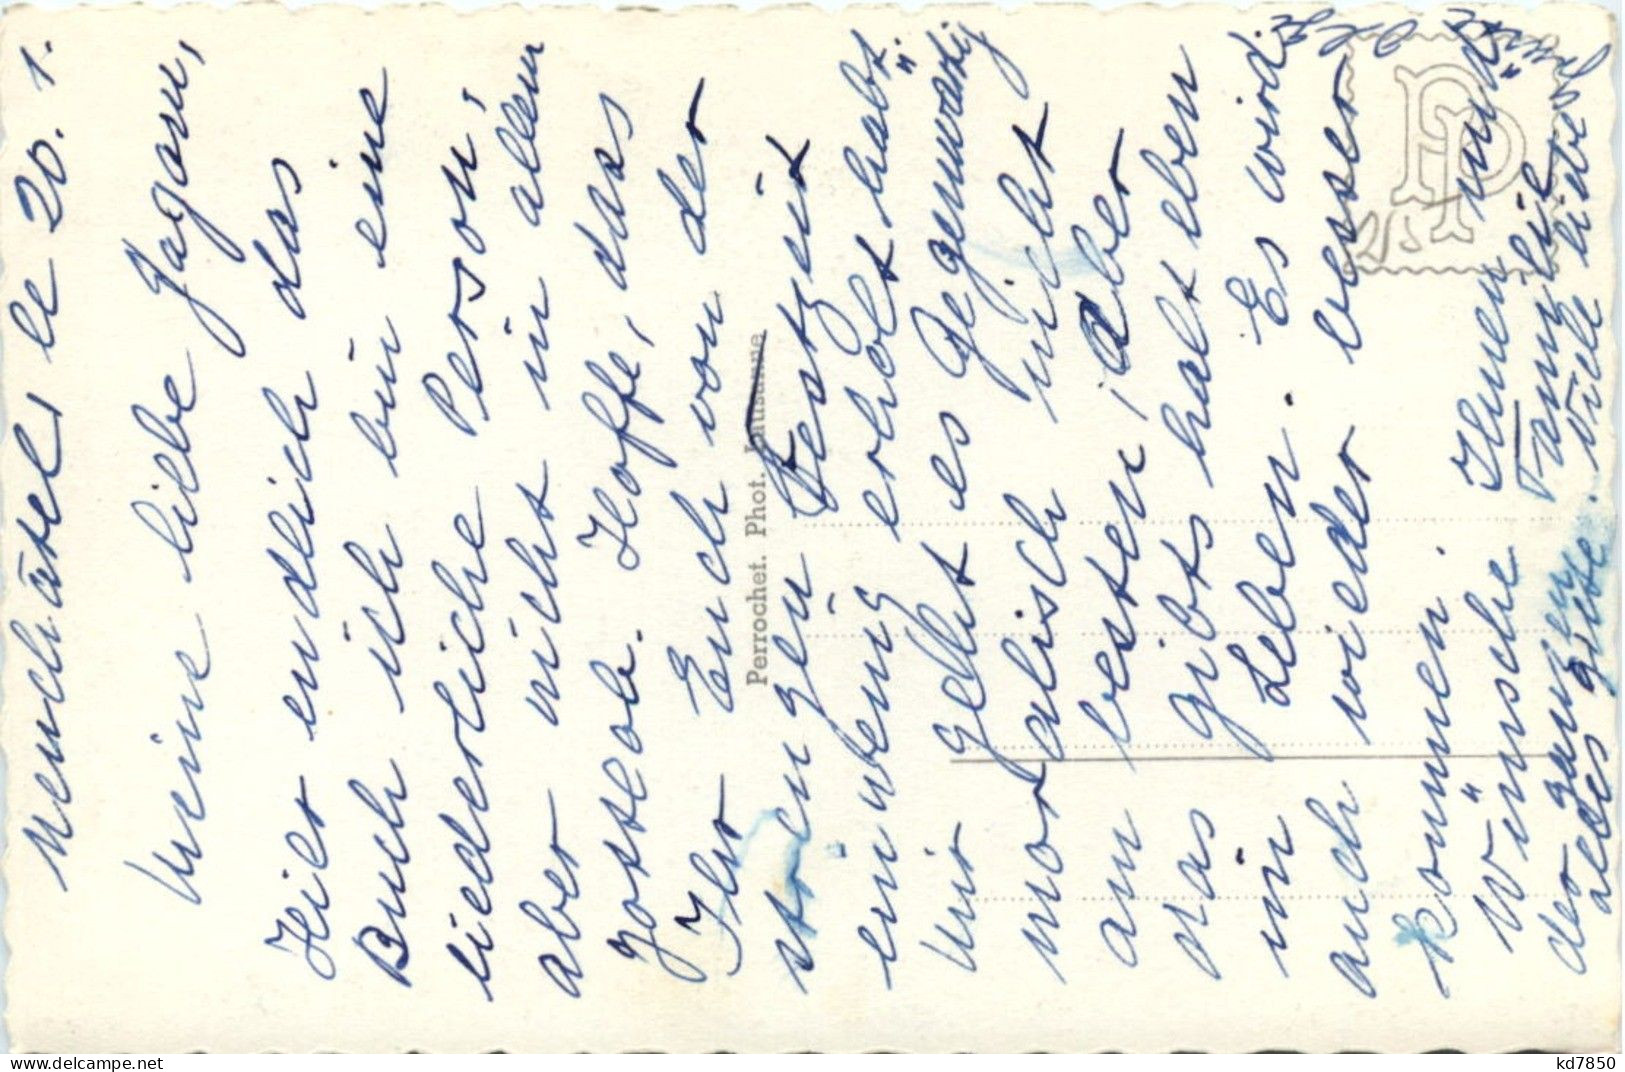 Neuchâtel le 20. 1.
Meine liebe
Hier endlich das
Buch ich bin eine
liederliche Person,
aber nicht in allem
gottlob. Hoffe, das
Ihr Euch von der
strengen Festzeit
ein wenig erholt habt.
Mir geht es gegenwärtig
moralisch nicht
am besten, aber
das gibts halt eben
im Leben. Es wird
auch wieder besser
kommen.
Wünsche Ihnen und
der ganzen Familie
alles gute. Viele liebe
Perrochet. Phot. Lausanne
kd7850